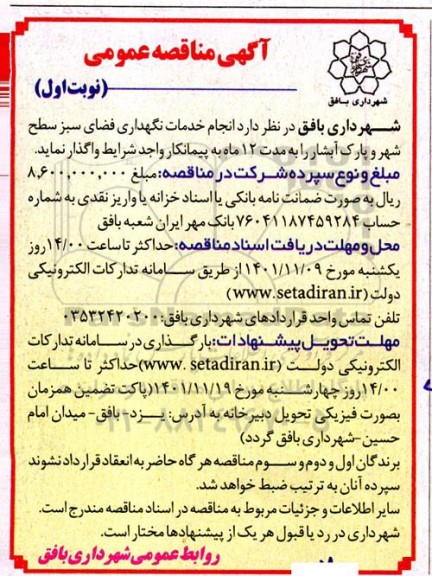 آگهی مناقصه عمومی
(نوبت اول)
شهرداری بافق
شهرداری بافق در نظر دارد انجام خدمات نگهداری فضای سبز سطح
شهر و پارک آبشار را به مدت ۱۲ ماه به پیمانکار واجد شرایط واگذار نماید.
مبلغ و نوع سپرده شرکت در مناقصه: مبلغ ۸,۶۰۰,۰۰۰,۰۰۰
ریال به صورت ضمانت نامه بانکی یا اسناد خزانه یا واریز نقدی به شماره
حساب ۷۶۰۴۱۱۸۷۴۵۹۲۸۴ بانک مهر ایران شعبه بافق
محل و مهلت دریافت اسناد مناقصه: حداکثر تا ساعت ۱۴/۰۰ روز
یکشنبه مورخ ۱۴۰۱/۱۱/۰۹ از طریق سامانه تدارکات الکترونیکی
دولت (www.setadiran.ir)
تلفن تماس واحد قراردادهای شهرداری بافق: ۰۳۵۳۲۴۲۰۲۰۰
مهلت تحویل پیشنهادات: بارگذاری در سامانه تدارکات
الکترونیکی دولت (www. setadiran.ir) حداکثر تا ساعت
۱۴/۰۰ روز چهارشنبه مورخ ۱۴۰۱/۱۱/۱۹ (پاکت تضمین همزمان
بصورت فیزیکی تحویل دبیرخانه به آدرس: یزد- بافق- میدان امام
حسین -شهرداری بافق گردد)
برندگان اول و دوم و سوم مناقصه هر گاه حاضر به انعقاد قرارداد نشوند
سپرده آنان به ترتیب ضبط خواهد شد.
سایر اطلاعات و جزئیات مربوط به مناقصه در اسناد مناقصه مندرج است.
شهرداری در رد یا قبول هر یک از پیشنهادها مختار است.
روابط عمومی شهرداری بافق